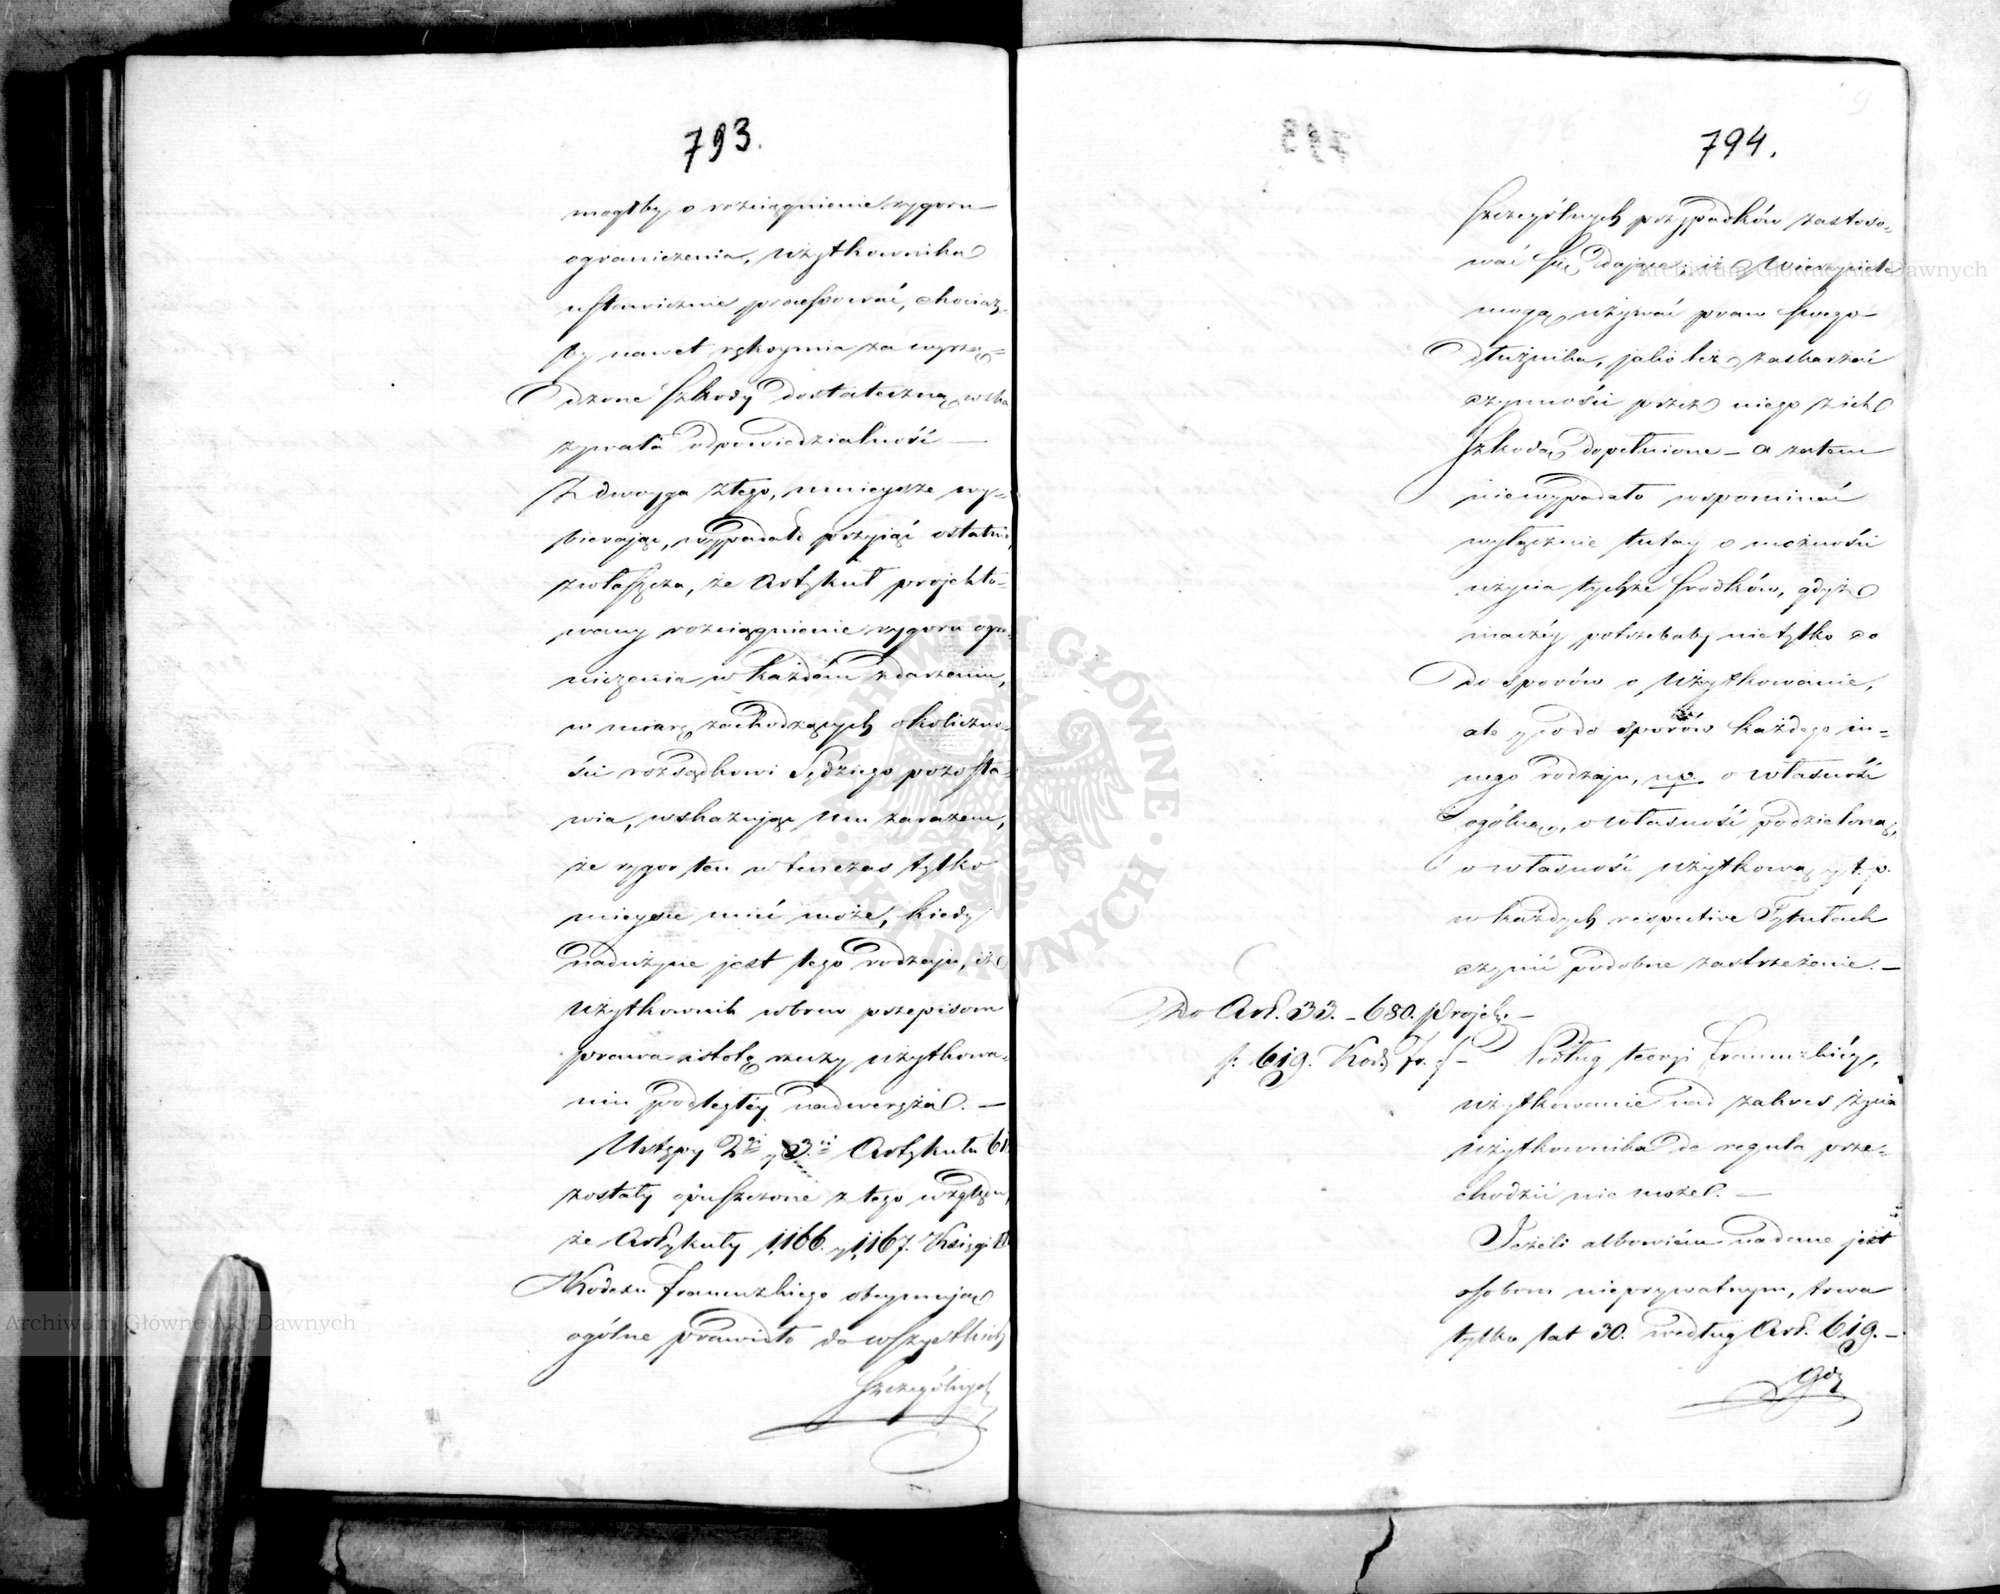 793.
mogłby o rozciągnienie rygoru
ograniczenia, użytkownika
ustawicznie processować, chociaż-
by nawet rękoymia za wyrzą=
dzone szkody dostateczną wska
zywała odpowiedzialność —
Z dwoyga złego, mnieysze wy=
bierając, wypadało przyjąć ostatnie,
zwłaszcza, że Artykuł projekto=
wany rozciągnienie rygoru ogra=
niczenia w każdém zdarzeniu,
w miarę zachodzących okoliczno=
ści rozsądkowi Sędziego pozosta=
wia, wskazując mu zarazem,
że rygor ten wtenczas tylko
mieysce mieć może, kiedy
nadużycie jest tego rodzaju, iż
użytkownik wbrew przepisom
prawa istotę rzeczy użytkowa=
niu podległéy nadwerężał. —
Ustępy 2gi y 3ci Artykułu 61
zostały opuszczone z tego względu,
że Artykuły 1166. y 1167. Księgi III
Kodexu francuzkiego obeymując
ogólne prawidło do wszystkich
szczególnych
794.
szczególnych przypadków zastoso=
wać się dające, iż Wierzyciele
mogą używać praw swego
dłużnika, jako też zaskarżać
czynności przez niego z ich
szkodą dopełnione — a zatem
niewypadało wspominać
wyłącznie tutay o możności
użycia tychże środków, gdyż
inaczéy potrzebaby nietylko co
do sporów o użytkowanie,
ale y co do sporów każdego in=
nego rodzaju, np. o własność
ogólną, o własność podzieloną,
o własność użytkową y t. p.
w każdych respective Tytułach
czynić podobne zastrzeżenie. —
Do Art. 33. — 680. Projek. —
f. 619. Kod. Fr. f — Podług teoryi francuzkiéy,
użytkowanie nad zakres życia
użytkownika de regula prze=
chodzić nie może. —
Jeżeli albowiém nadane jest
osobom nieprywatnym, trwa
tylko lat 30. według Art. 619. —
Gdy
Archiwum Główne Akt Dawnych
Archiwum Główne Akt Dawnych
ARCHIWUM GŁÓWNE AKT DAWNYCH